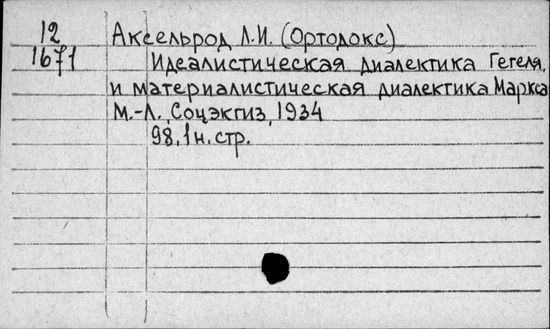 12 Аксельрод Л.И. (Ортодокс)
1671 Идеалистическая диалектика Гегеля,
и материалистическая диалектика Маркса
М.-Л., Соцэкгиз, 1934
98, 1 н. стр.